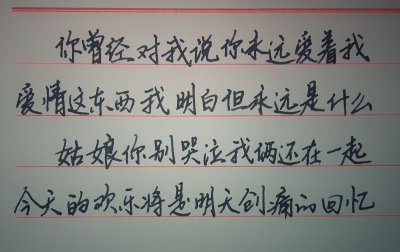 你曾经对我说你永远爱着我
爱情这东西我明白但永远是什么
姑娘你别哭泣我俩还在一起
今天的欢乐将是明天创痛的回忆